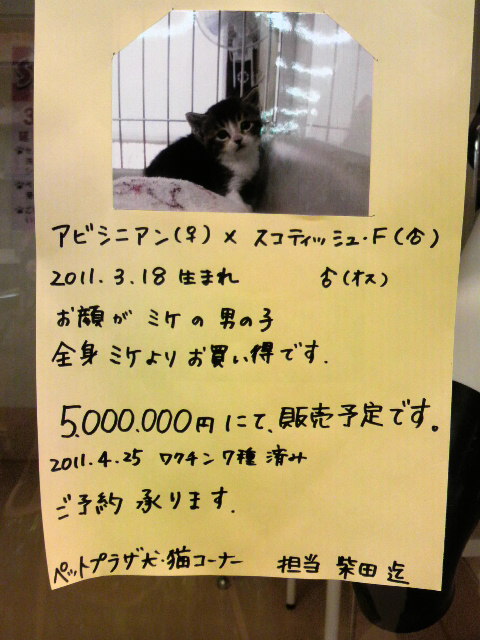 アビシニアン(♀) × スコティッシュ・F(♂)
2011.3.18 生まれ ♂(オス)
お顔が ミケ の 男の子
全身 ミケより お買い得です.
5.000.000円にて、販売予定です。
2011.4.25 ワクチン 7種 済み
ご予約 承ります.
ペットプラザ犬・猫コーナー 担当 柴田 迄